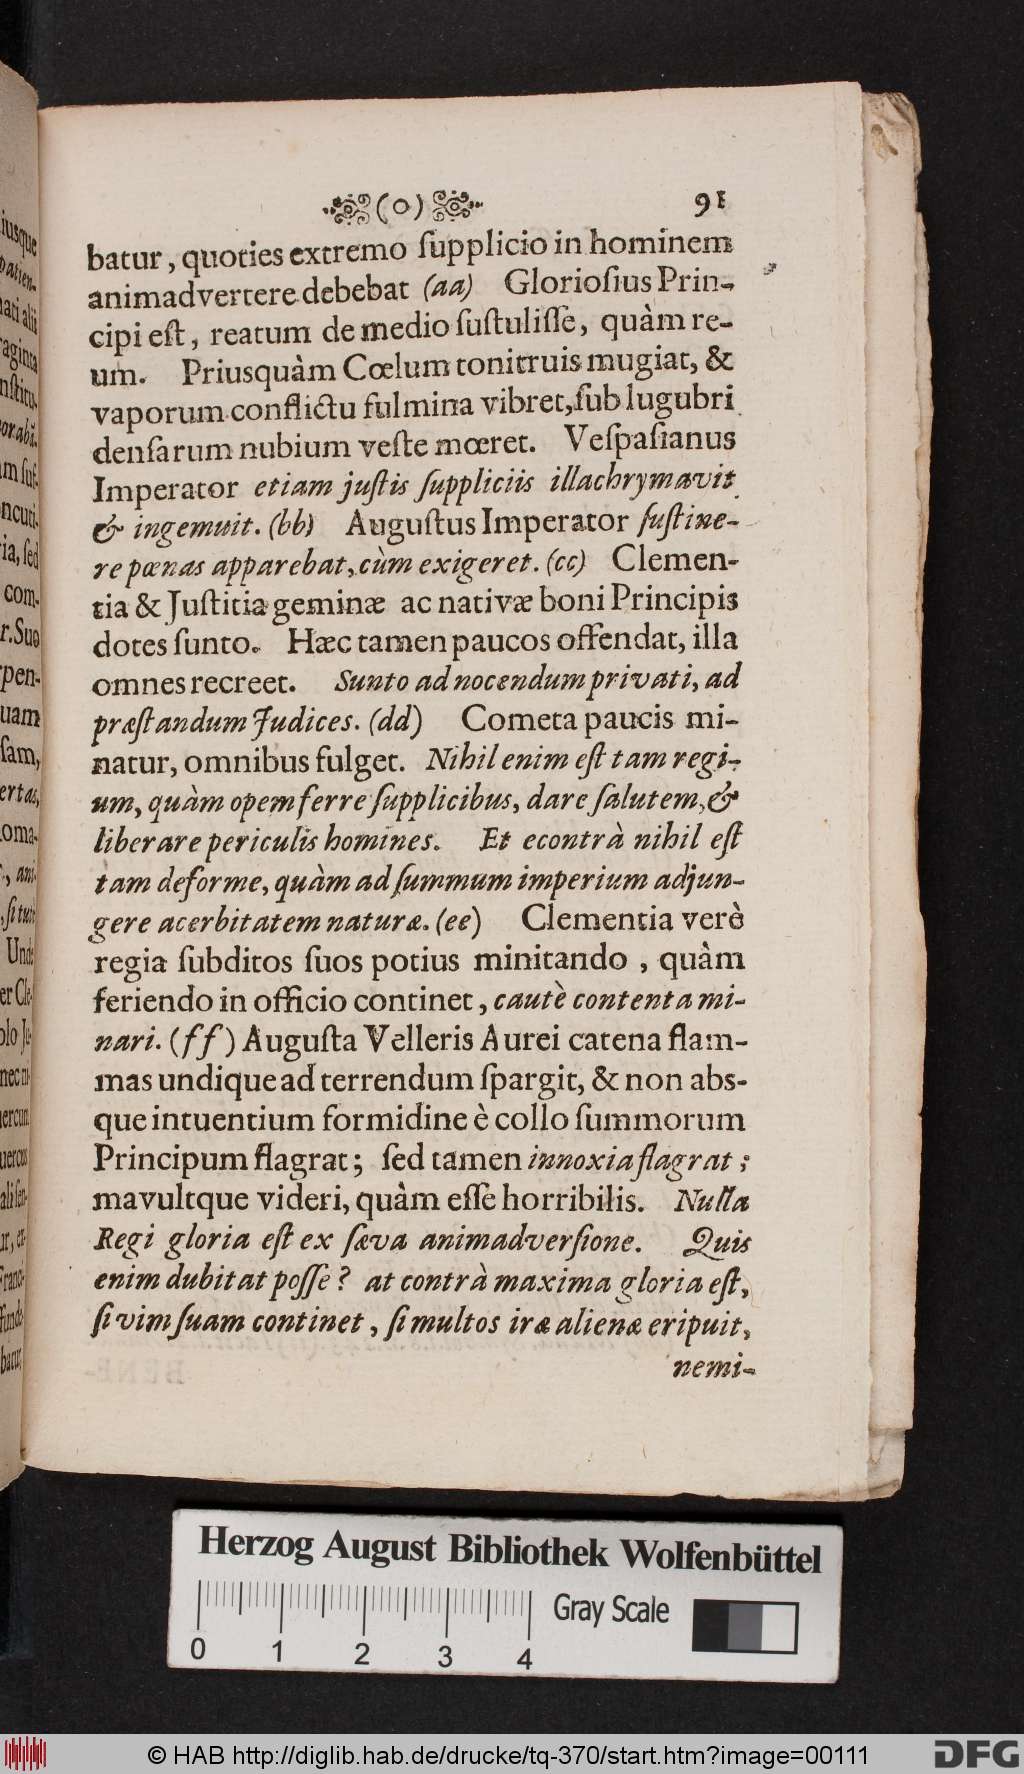 (o) 91
batur, quoties extremo ſupplicio in hominem
animadvertere debebat (aa) Glorioſius Prin-
cipi eſt, reatum de medio ſuſtuliſſe, quàm re-
um. Priusquàm Cœlum tonitruis mugiat, &
vaporum conflictu fulmina vibret, ſub lugubri
denſarum nubium veſte mœret. Veſpaſianus
Imperator etiam juſtis ſuppliciis illachrymavit
& ingemuit. (bb) Auguſtus Imperator ſuſtine-
re pœnas apparebat, cùm exigeret. (cc) Clemen-
tia & Juſtitia geminæ ac nativæ boni Principis
dotes ſunto. Hæc tamen paucos offendat, illa
omnes recreet. Sunto ad nocendum privati, ad
præſtandum Judices. (dd) Cometa paucis mi-
natur, omnibus fulget. Nihil enim eſt tam regi-
um, quàm opem ferre ſupplicibus, dare ſalutem, &
liberare periculis homines. Et econtrà nihil eſt
tam deforme, quàm ad ſummum imperium adjun-
gere acerbitatem naturæ. (ee) Clementia verè
regia ſubditos ſuos potius minitando, quàm
feriendo in officio continet, cautè contenta mi-
nari. (ff) Auguſta Velleris Aurei catena flam-
mas undique ad terrendum ſpargit, & non abs-
que intuentium formidine è collo ſummorum
Principum flagrat; ſed tamen innoxia flagrat;
mavultque videri, quàm eſſe horribilis. Nulla
Regi gloria eſt ex ſæva animadverſione. Quis
enim dubitat poſſe? at contrà maxima gloria eſt,
ſi vim ſuam continet, ſi multos iræ alienæ eripuit,
nemi-
Herzog August Bibliothek Wolfenbüttel
Gray Scale
0 1 2 3 4
© HAB http://diglib.hab.de/drucke/tq-370/start.htm?image=00111
DFG